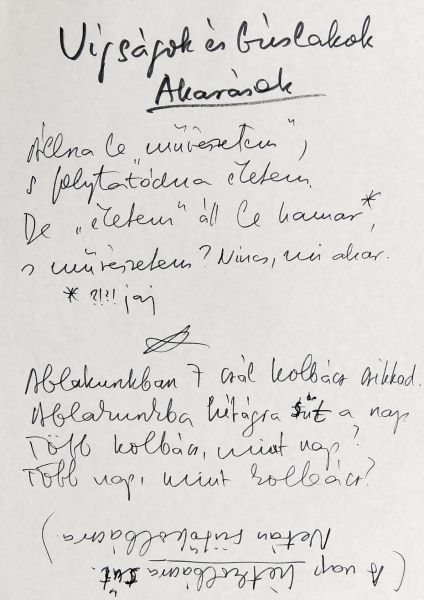 Vígságok és búslakok
Akarások
Állna le „művészetem”,
s folytatódna életem.
De „életem” áll le hamar*,
s művészetem? Nincs, mi akar.
* ?!?! jaj
Ablakunkban 7 szál kolbász csikkad.
Ablakunkba hétágra süt a nap
Több kolbász, mint nap?
Több nap, mint kolbász?
(A nap hétkolbászra süt.
Netán sütőkolbászra.)